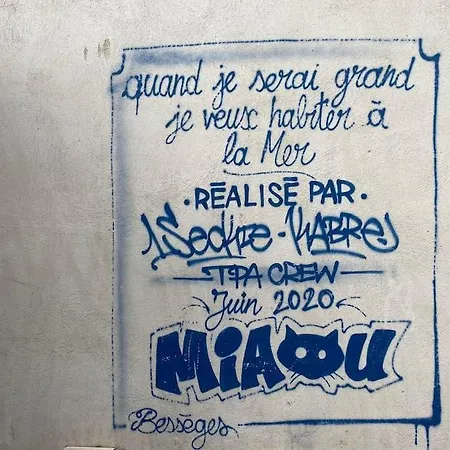 quand je serai grand
je veux habiter à
la Mer
• RÉALISÉ PAR •
KABRE
TPA CREW
Juin 2020
MIAOU
Bessèges